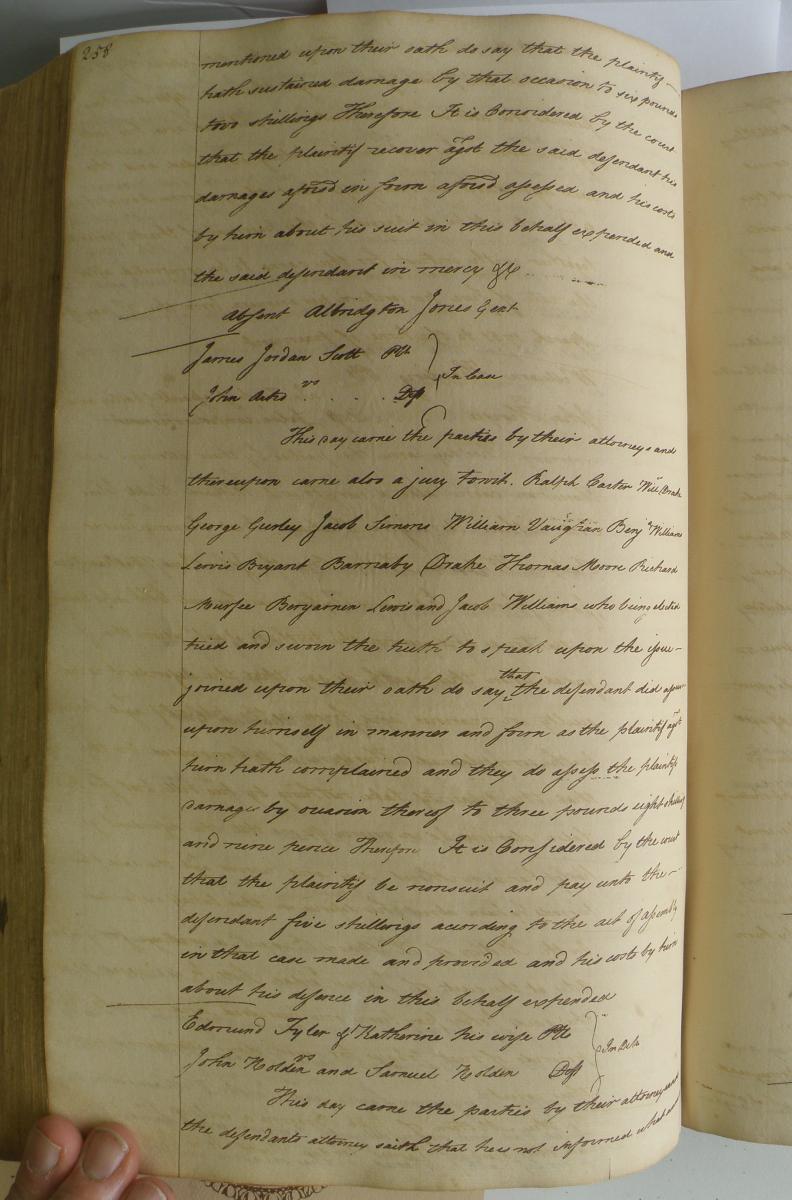 258
mentioned upon their oath do say that the plaintif
hath sustained damage by that occasion to six pounds
two shillings Therefore It is Considered by the court
that the plaintif recover agst the said defendant his
damages aforsd in form aforsd assessed and his costs
by him about his suit in this behalf expended and
the said defendant in mercy &c
Absent Albridgton Jones Gent
James Jordan Scott Plt
vs In Case
John Deft
This day came the parties by their attorneys and
thereupon came also a jury towit. Ralph Carter Will Drake
George Gurley Jacob Simons William Vaughan Benja Williams
Lewis Bryant Barnaby Drake Thomas Moore Richard
Murfee Benjamin Lewis and Jacob Williams who being elected
tried and sworn the truth to speak upon the issue
joined upon their oath do say that the defendant did assume
upon himself in manner and form as the plaintif agst
him hath complained and they do assess the plaintifs
damages by ocasion thereof to three pounds eight shillings
and nine pence Therefore It is Considered by the court
that the plaintif be nonsuit and pay unto the
defendant five shillings according to the act of assembly
in that case made and provided and his costs by him
about his defence in this behalf expended
Edmund Tyler & Katherine his wife Plts
vs In Debt
John Holden and Samuel Holden Defts
This day came the parties by their attorneys and
the defendants attorney saith that he is not informed